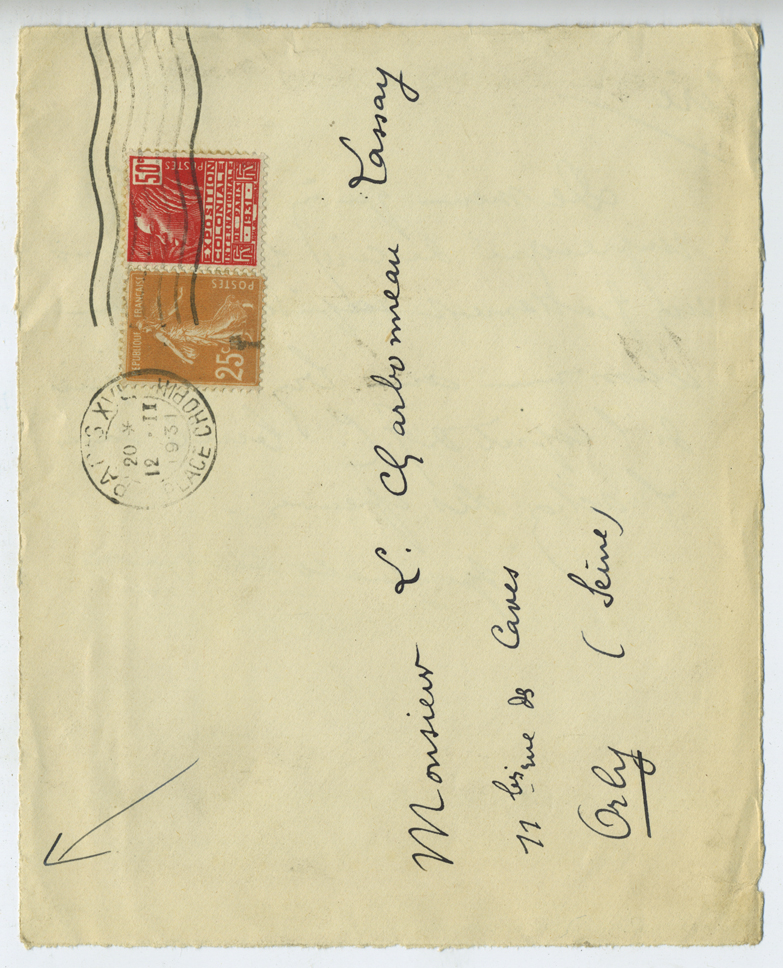 50c
POSTES
EXPOSITION
COLONIALE
INTERNATIONALE
DE PARIS
1931
REPUBLIQUE FRANÇAISE
POSTES
25c
PARIS XIII
20 * 
12 - II
1931
PLACE CHOPIN
Monsieur L. Charbonneau Lassay
11 bis rue des Caves
Orly (Seine)